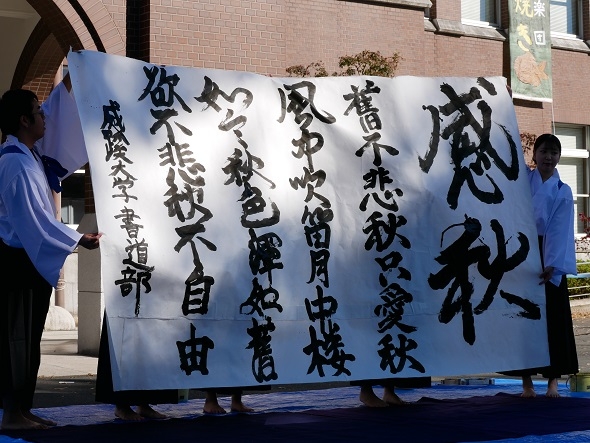 感秋
舊不悲秋只愛秋
風中吹笛月中樓
如今秋色渾如舊
欲不悲秋不自由
成蹊大学書道部
楽団
焼き